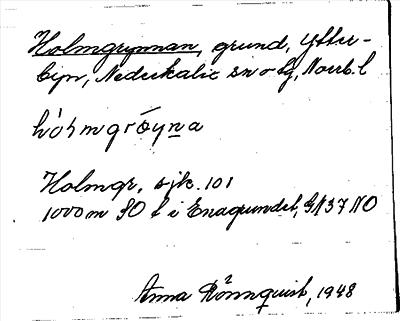 Holmgrynnan, grund, Ytter-
byn, Nederkalix sn o tg, Norrb. l
hòlmgrǿyna
Holmgr, sjk. 101
1000 m SO t i Enagrundet, GN 37 NO
Anna Rönnquist, 1948